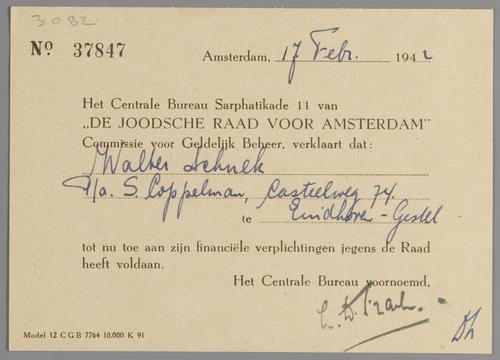 3082
No 37847
Amsterdam, 17 Febr. 1942
Het Centrale Bureau Sarphatikade 11 van
„DE JOODSCHE RAAD VOOR AMSTERDAM"
Commissie voor Geldelijk Beheer, verklaart dat:
Walter Schnek
p/a. S. Coppelman, Casteelweg 74.
te Eindhoven-Gestel
tot nu toe aan zijn financiële verplichtingen jegens de Raad
heeft voldaan.
Het Centrale Bureau voornoemd,
Model 12 C G B 7764 10.000 K 91